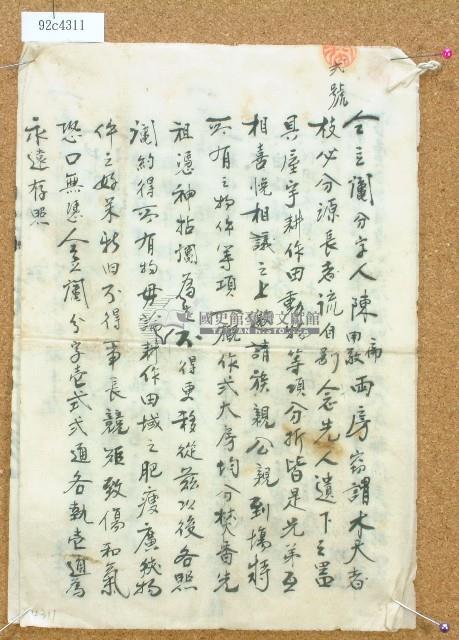 92c4311
天號
仝立鬮分字人陳 兩房竊謂木大者
枝必分源長者流自別念先人遺下之置
具屋宇耕作田動物等項分折皆是兄弟互
相喜悅相議之上邀請族親公親到塲特
所有之物件等項 作弍大房均分焚香先
祖憑神拈鬮為 不得更移從茲以後各照
鬮約得所有物 耕作田域之肥瘦廣狹物
件之好呆新旧不得爭長競短致傷和氣
恐口無憑仝立鬮分字壹式弍通各執壹通為
永遠存照
國史館臺灣文獻館
TAIWAN HISTORICA
4311
92c4311